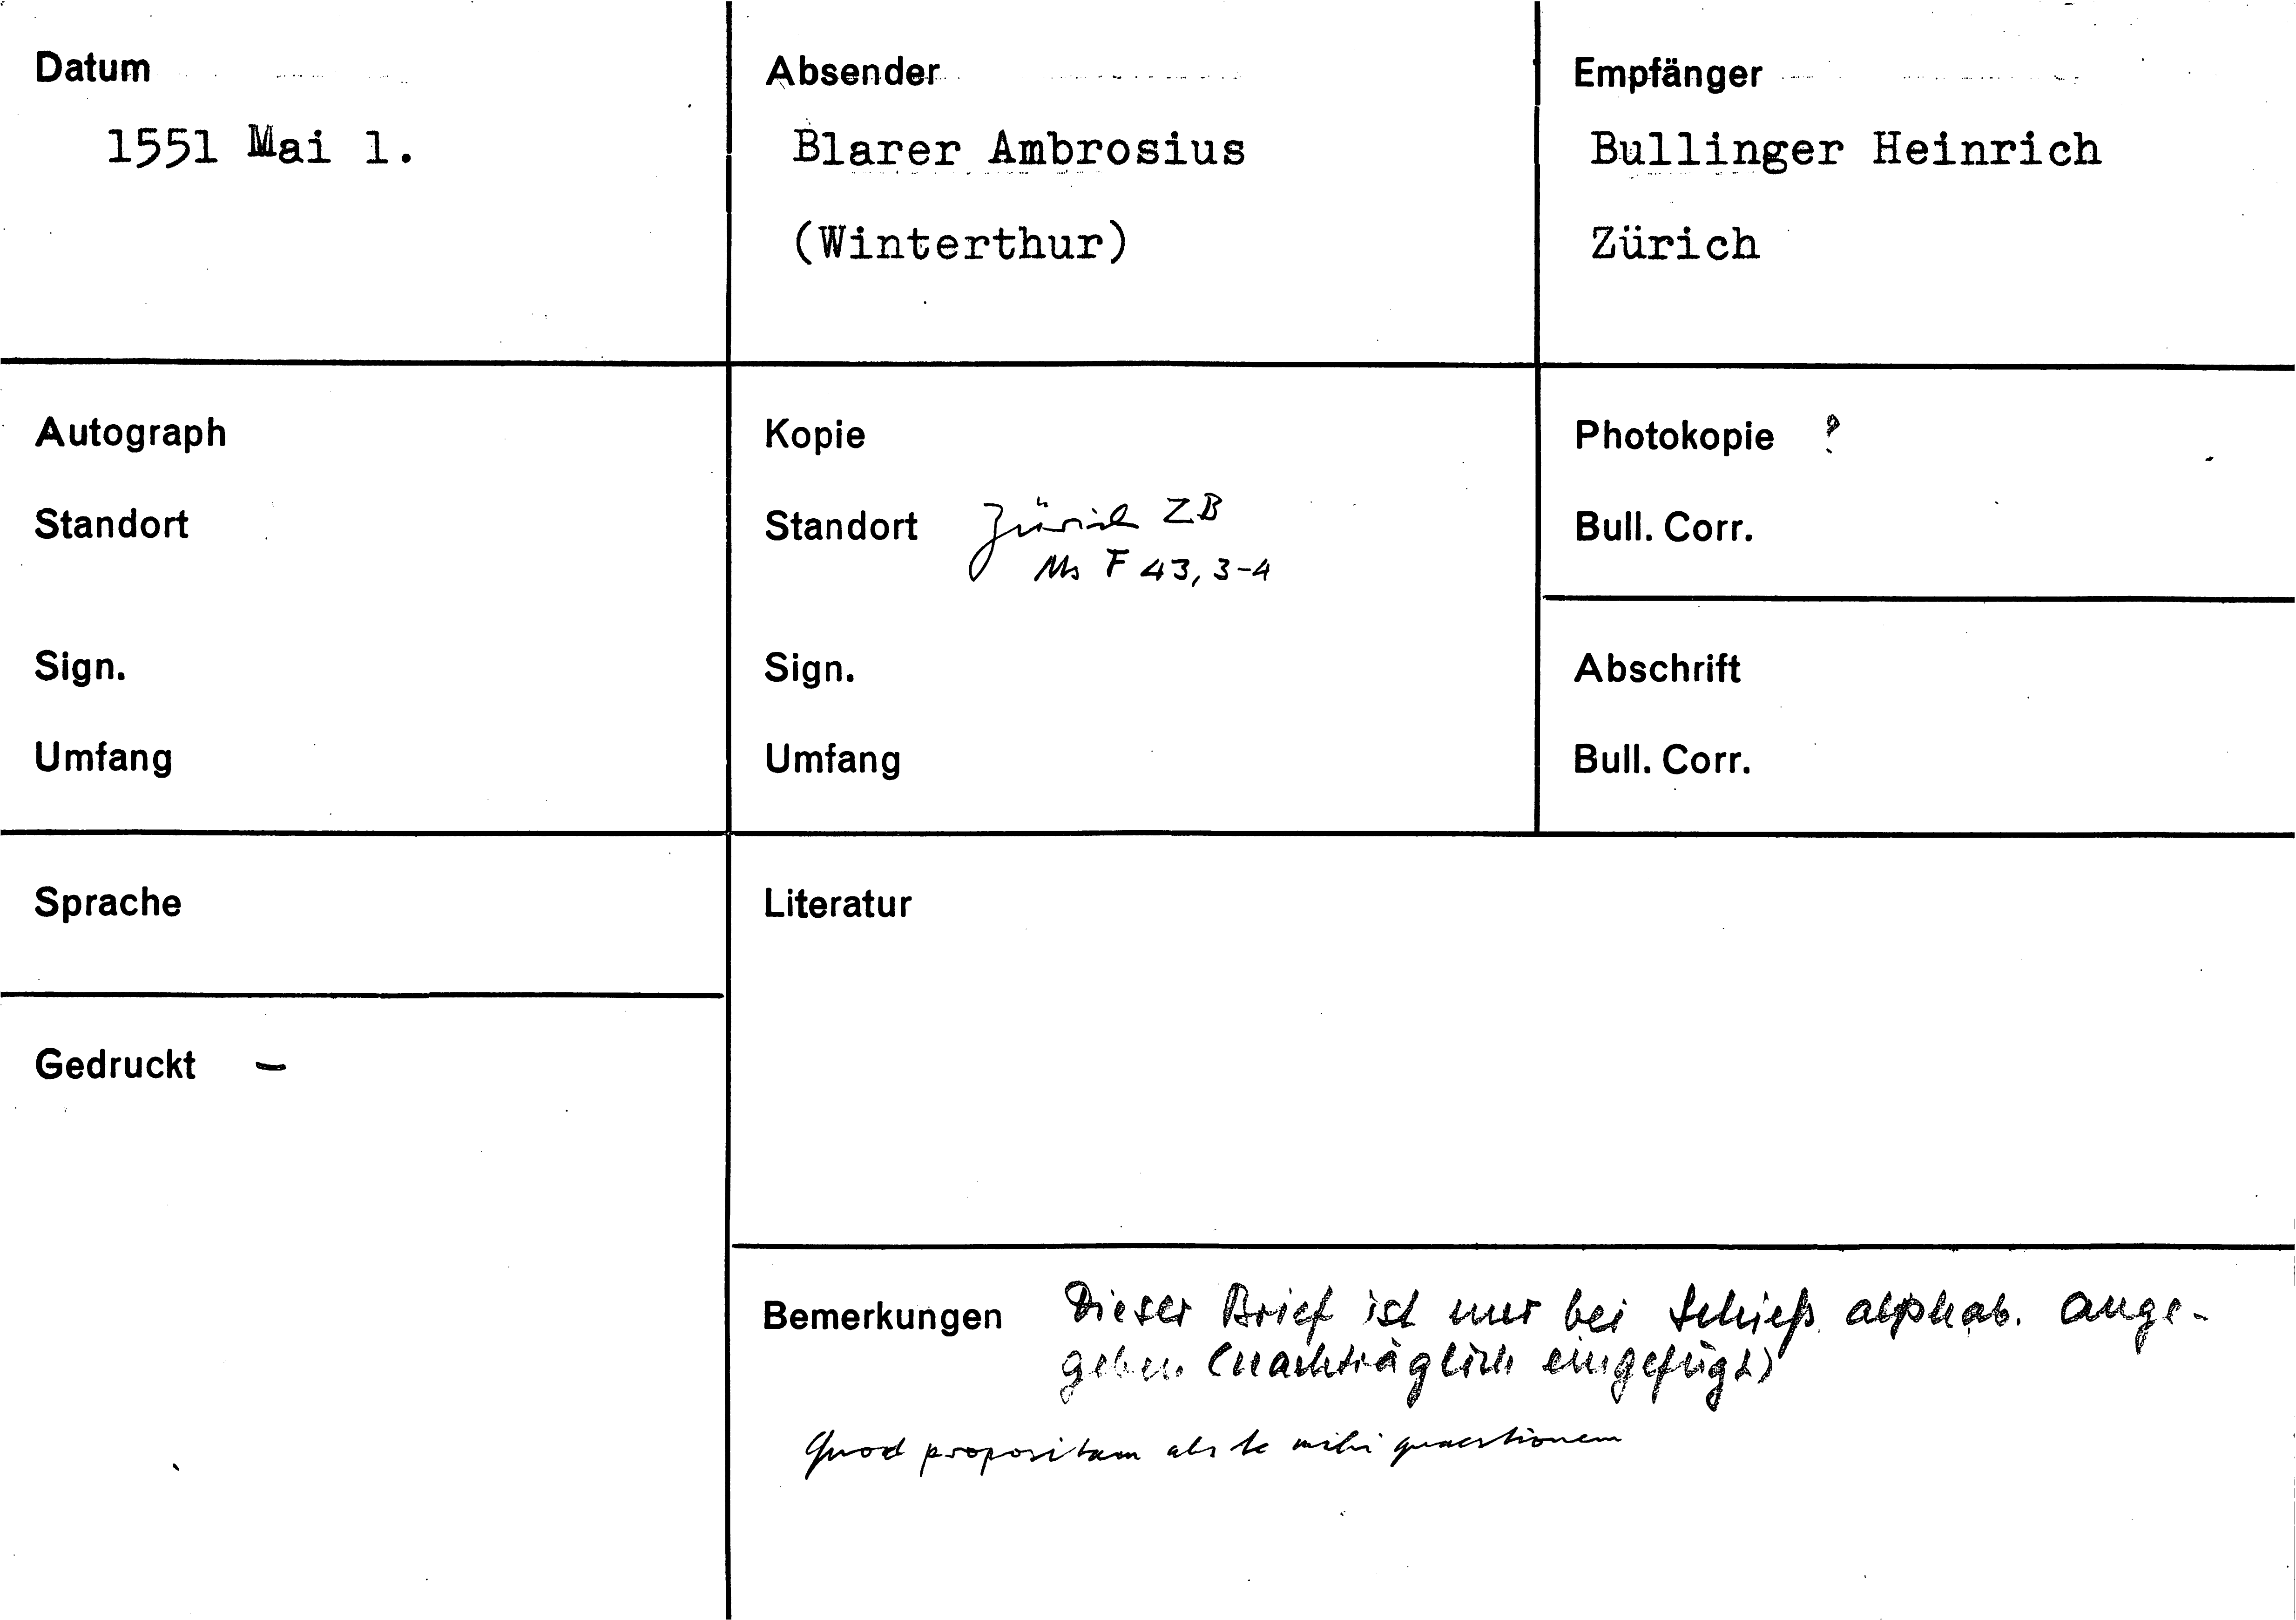 Datum
1551 Mai 1.
Absender
Blarer Ambrosius
(Winterthur)
Empfänger
Bullinger Heinrich
Zürich
Autograph
Standort
Sign.
Umfang
Kopie
Standort Zürich ZB
Ms F 43, 3-4
Sign.
Umfang
Photokopie ?
Bull. Corr.
Abschrift
Bull. Corr.
Sprache
Gedruckt –
Literatur
Bemerkungen Dieser Brief ist nur bei Schieß alphab. ange-
geben (nachträglich eingefügt)
Quod propositam abs te mihi quaestionem